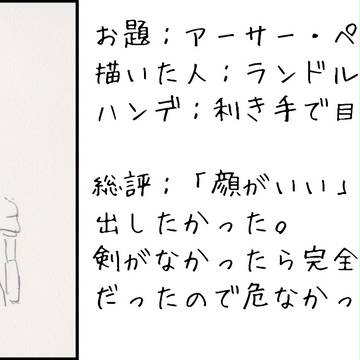 お題；アーサー・ペ
描いた人；ランドル
ハンデ；利き手で目
総評；「顔がいい」
出したかった。
剣がなかったら完全
だったので危なかっ